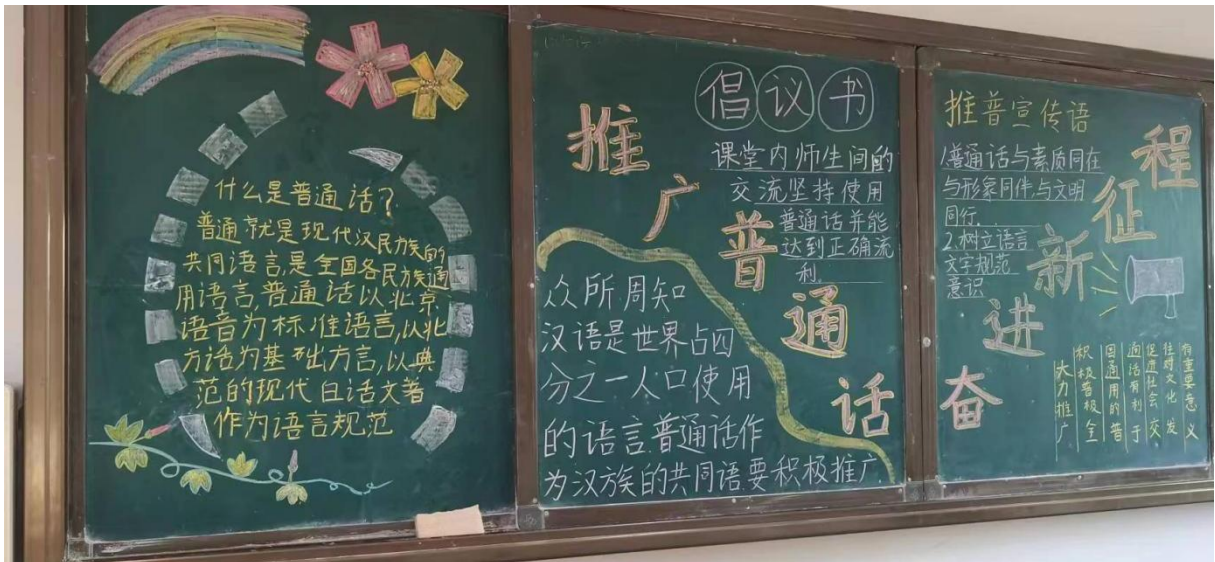 什么是普通话？
普通就是现代汉民族的
共同语言,是全国各民族通
用语言,普通话以北京
语音为标准语言,以北
方话为基础方言,以典
范的现代白话文著
作为语言规范
推广普通话
倡议书
课堂内师生间的
交流坚持使用
普通话并能
达到正确流
利.
众所周知
汉语是世界占四
分之一人口使用
的语言.普通话作
为汉族的共同语要积极推广.
推普宣传语
1.普通话与素质同在
与形象同伴与文明
同行.
2.树立语言
文字规范
意识
奋进新征程
大力推广
积极普极全
国通用的普
通话有利于
促进社会交
往对文化发
有重要意义